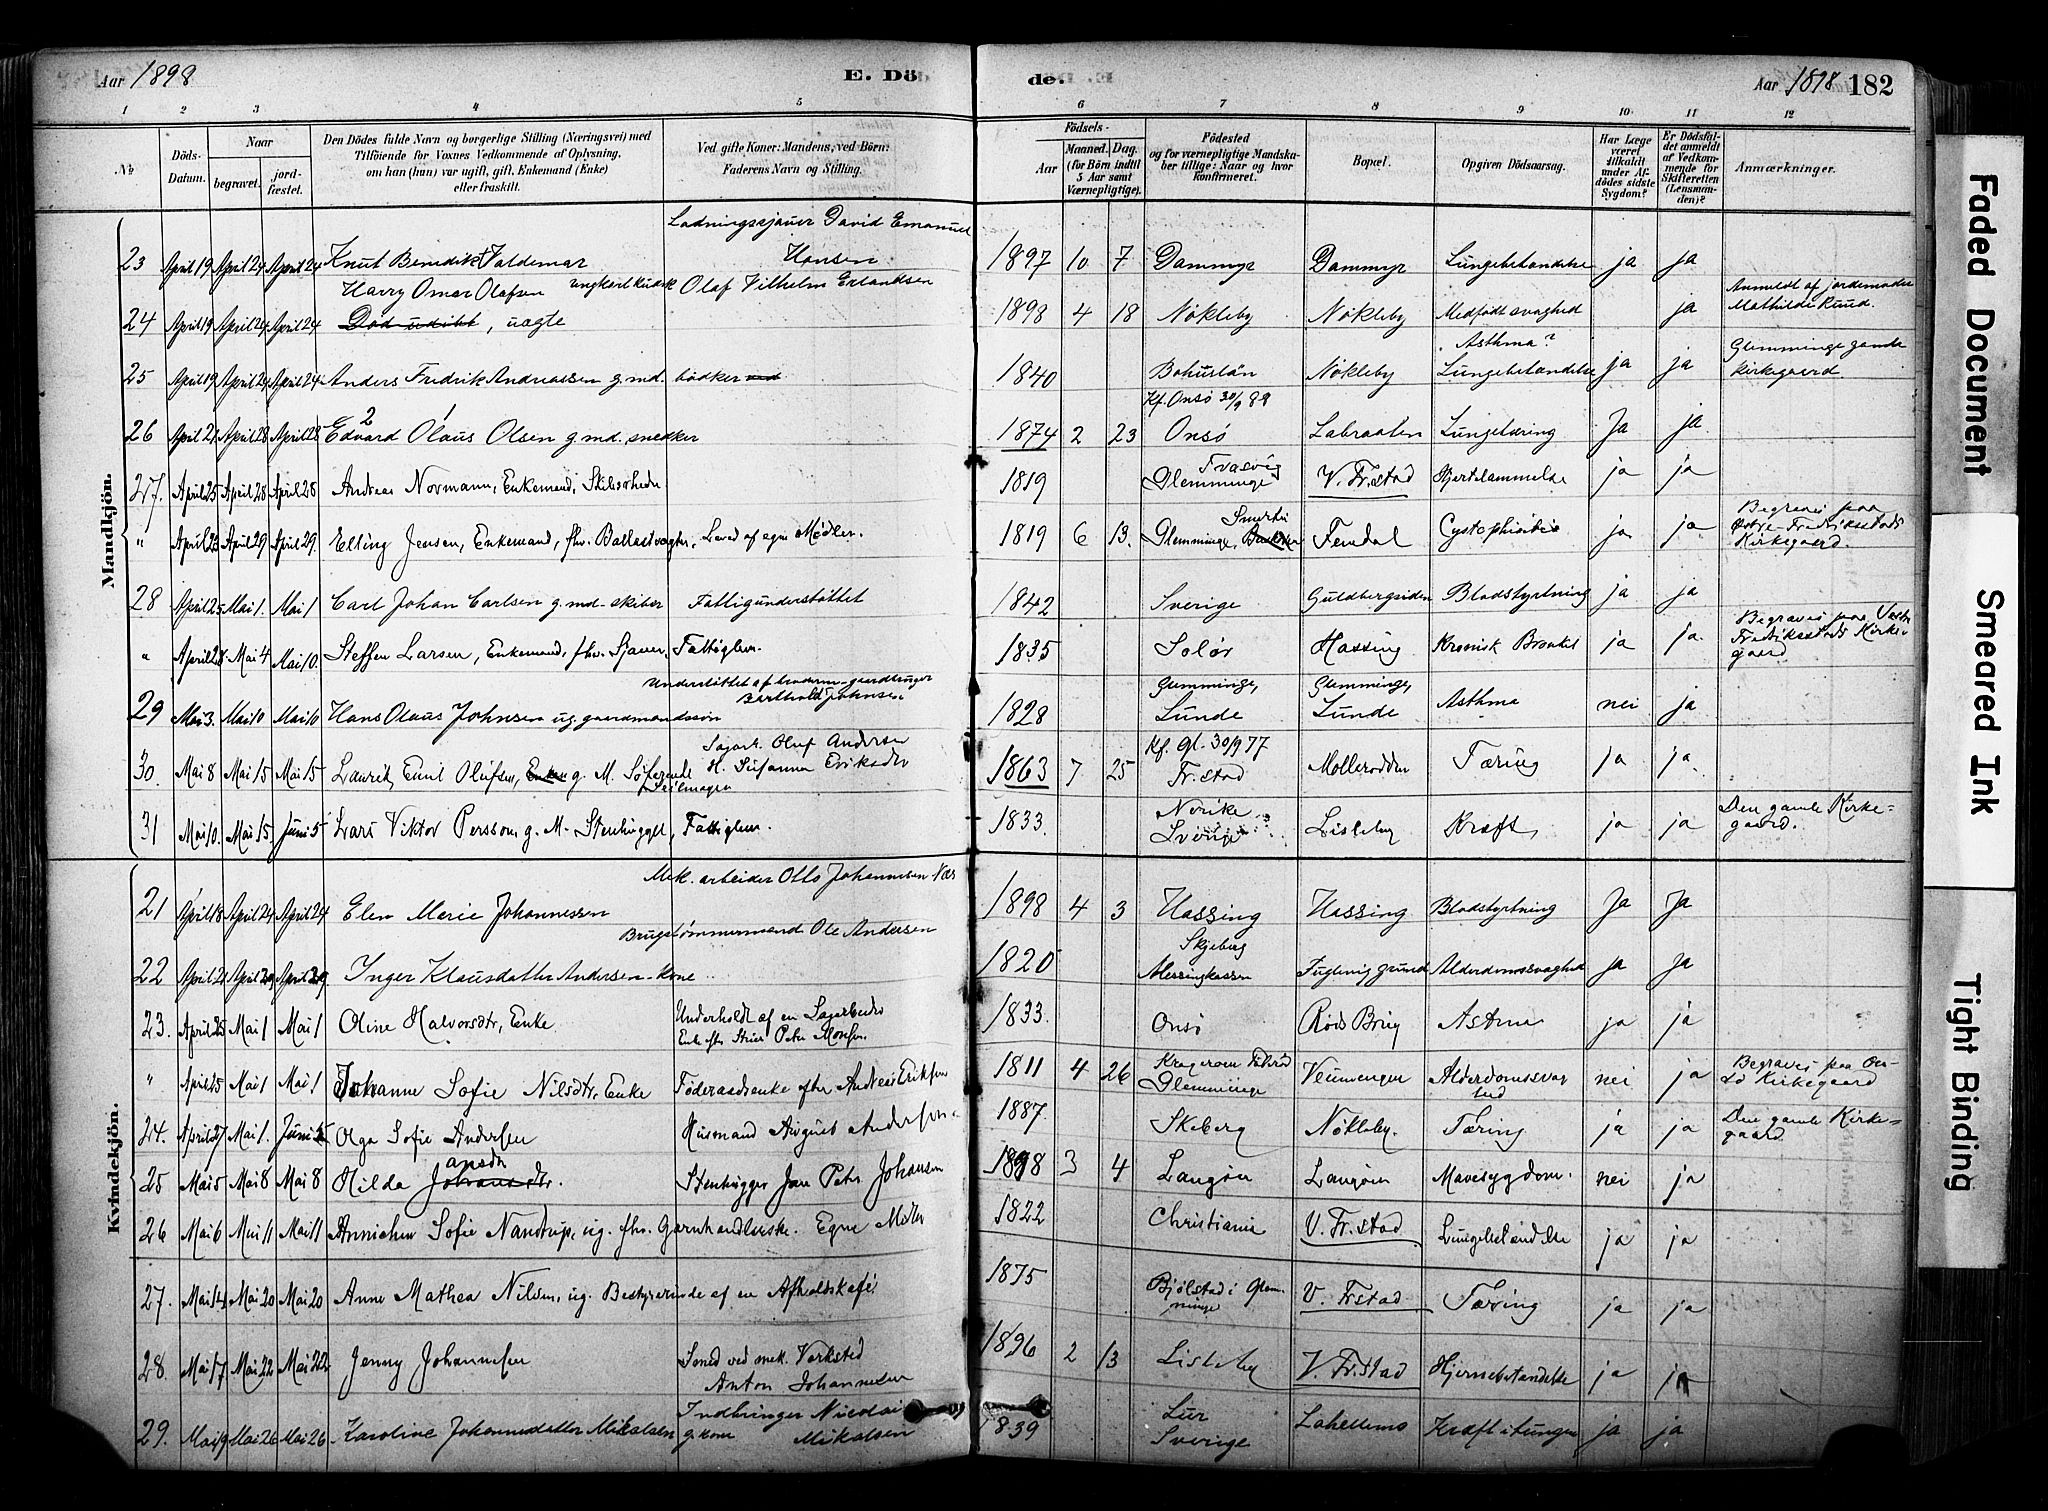 Aar 1898 E. Dö de. Aar 1898 182
1 2 3 4 5 6 7 8 9 10 11 12
№ Döds-Datum. Naar begravet. jordfæstet. Den Dödes fulde Navn og borgerlige Stilling (Næringsvei) med Tilföiende for Voxnes Vedkommende af Oplysning, om han (hun) var ugift, gift, Enkemand (Enke) eller fraskilt. Ved gifte Koner: Mandens, ved Börn: Faderens Navn og Stilling. Födsels- Aar Maaned. Dag. (for Börn indtil 5 Aar samt Værnepligtige). Födested og for værnepligtige Mandskaber tillige: Naar og hvor konfirmeret. Bopæl. Opgiven Dödsaarsag. Har Læge været tilkaldt under Afdödes sidste Sygdom? Er Dödsfaldet anmeldt af Vedkommende for Skifteretten (Lensmanden)? Anmærkninger.
Mandkjön.
Ladningssjauer David Emanuel
23 April 19 April 24 April 24 Knut Benedikt Valdemar Hansen 1897 10 7 Dammyr Dammyr Lungebetændelse ja ja
Harry Omar Olafsen ungkarl kudsk Olaf Vilhelm Erlandsen Anmeldt af jordemoder
24 April 19 April 24 April 24 Död udöbt, uægte 1898 4 18 Nökleby Nökleby Medfödt svaghed ja Mathilde Ruud.
Asthma? Glemminge gamle
25 April 19 April 24 April 24 Anders Fredrik Andreassen g.md. bödker 1840 Bohuslän Nökleby Lungebetændelse ja ja kirkegaard.
2 1 Kf. Onsö 30/9 88
26 April 21 April 28 April 28 Edvard Olaus Olsen g.md. snedker 1874 2 23 Onsö Labraaten Lungetæring Ja ja
27. April 25 April 28 April 28 Andreas Normann, Enkemand, Skibsrheder 1819 Glemminge V. Fr.stad Hjertelammelse ja ja
Begraves paa
" April 23 April 29 April 29. Elling Jensen, Enkemand, fhv. Ballastvagter, Leved af egne Midler. 1819 6 13. Glemminge, Femdal ja ja Östre-Fredriksstads Kirkegaard.
28 April 25 Mai 1. Mai 1 Carl Johan Carlsen g.md. Fattigunderstöttet 1842 Sverige Guldbergsiden Blodstyrtning ja ja
" April 28 Mai 4 Mai 10. Steffen Larsen, Enkemand, fhv. Sjauer, Fattiglem. 1835 Solör Hassing Kronisk Bronkit ja ja Begraves paa Vestre Fredriksstads Kirkegaard
Understöttet af broderen-gaardbruger Barthold Johnsen Glemminge, Glemminge,
29 Mai 3. Mai 10 Mai 10 Hans Olaus Johnsen ug. gaardmandssön 1828 Lunde Lunde Asthma nei ja
Oluf Andersen Kf. Gl. 30/9 77
30. Mai 8 Mai 15 Mai 15 Laurits Emil Olufsen, g. M. Söfarende Seilmager H. Susanna Eriksdtr 1863 7 25 Fr.stad Mollerodden Tæring ja ja.
31 Mai 10. Mai 15. Juni 5 Lars Viktor Persson, g. M. Stenhugger, Fattiglem. 1833. Nerike Sverige Lisleby Kræft, ja ja Den gamle Kirkegaard.
Kvindekjön.
Mek. arbeider Otto Johannesen Næs
21 April 18 April 24 April 24 Elen Marie Johannessen 1898 4 3 Hassing Hassing Blodstyrtning Ja Ja
Brugstömmermand Ole Andersen Skjeberg
22 April 21 April 29 April 29 Inger Klausdatter Andersen-kone 1820 Messingkassen Fuglevig grund Alderdomssvaghed ja Ja
23. April 25 Mai 1 Mai 1 Oline Halvorsdtr, Enke Underholdt af en Sagarbeider Enke efter Peter Monsen. 1833. Onsö Röds Brug Astma ja ja
" April 25 Mai 1 Mai 1 Johanne Sofie Nilsdtr, Enke Föderaadsenke efter Andreas Eriksen 1811 4 26 Glemminge Veumenger Alderdomssvaghed nei ja Begraves paa Onsö Kirkegaard
24. April 27 Mai 1. Juni 5 Olga Sofie Andersen Husmand August Andersen 1887. Skeberg Nökleby. Tæring ja ja Den gamle Kirkegaard
25 Mai 5 Mai 8 Mai 8 Hilda Johansdtr. ansdtr Stenhugger Jan Peter Johansen 1898 3 4 Langöen Langöen Mavesygdom. nei ja
26 Mai 6 Mai 11 Mai 11 Annichen Sofie Nandrup, ug. fhv. Garnhandlerske. Egne Midler 1822 Christiania V. Fr.stad Lungebetændelse ja ja
27. Mai 14 Mai 20 Mai 20 Anne Mathea Nilsen, ug. Bestyrerinde af en Afholdskafé 1875 Bjölstad i Glemminge V. Frstad Tæring ja ja
28. Mai 17 Mai 22 Mai 22 Jenny Johannesen Smed ved mek. Verksted Anton Johannesen 1896 2 13 Lisleby V. Fr.stad Hjernebetændelse ja ja
29. Mai 19 Mai 26 Mai 26 Karoline Johannesdatter Mikalsen g. kone Indbringer Nicolai Mikalsen 1839 Lur Sverige Lahellemo Kræft i tungen ja ja
Faded Document
Smeared Ink
Tight Binding